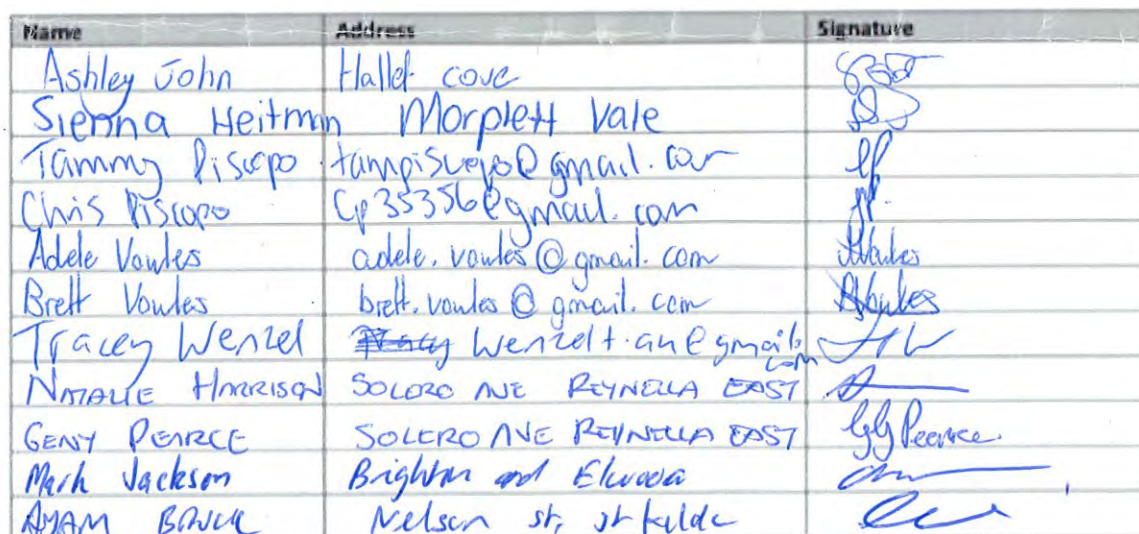 Name Address Signature
Ashley John Hallet cove
Sienna Heitman Morplett Vale
Tammy Piscopo tampiscopo@gmail.com
Chris Piscopo Cp35356@gmail.com
Adele Vowles adele.vowles@gmail.com AVowles
Brett Vowles brett.vowles@gmail.com
Tracey Wenzel Wenzelt.au@gmail.com
NATALIE HARRISON SOLERO AVE REYNELLA EAST
GENY PEARCE SOLERO AVE REYNELLA EAST GG Pearce
Mark Jackson Brighton and Elwood
Nelson st, st kilda